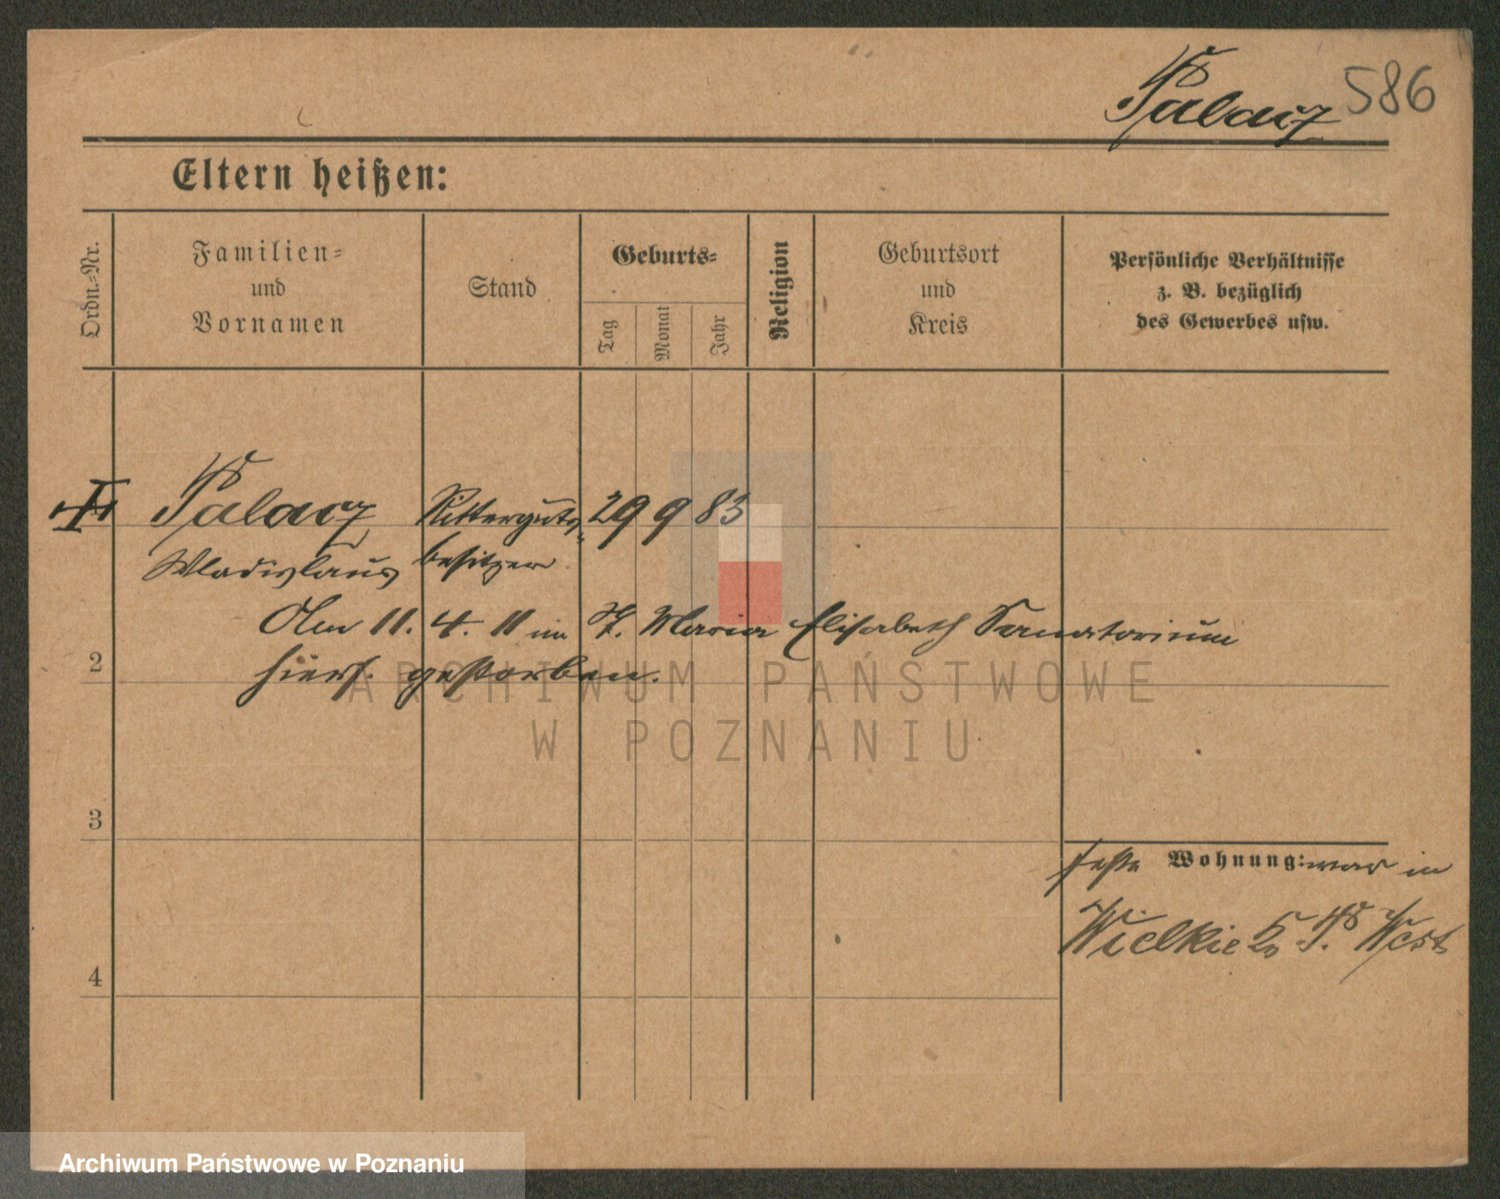 Palacz 586
Eltern heißen:
Ordn.-Nr.
Familien-
und
Vornamen
Stand
Geburts-
Tag
Monat
Jahr
Religion
Geburtsort
und
Kreis
Persönliche Verhältnisse
z. B. bezüglich
des Gewerbes usw.
Palacz Ritterguts- 29 9 83
Wladislaus besitzer
Am 11. 4. 11 im St. Maria Elisabeth Sanatorium
2
hiers. gestorben.
3
feste Wohnung: war in
Wielkie P. West
4
ARCHIWUM PAŃSTWOWE
W POZNANIU
Archiwum Państwowe w Poznaniu